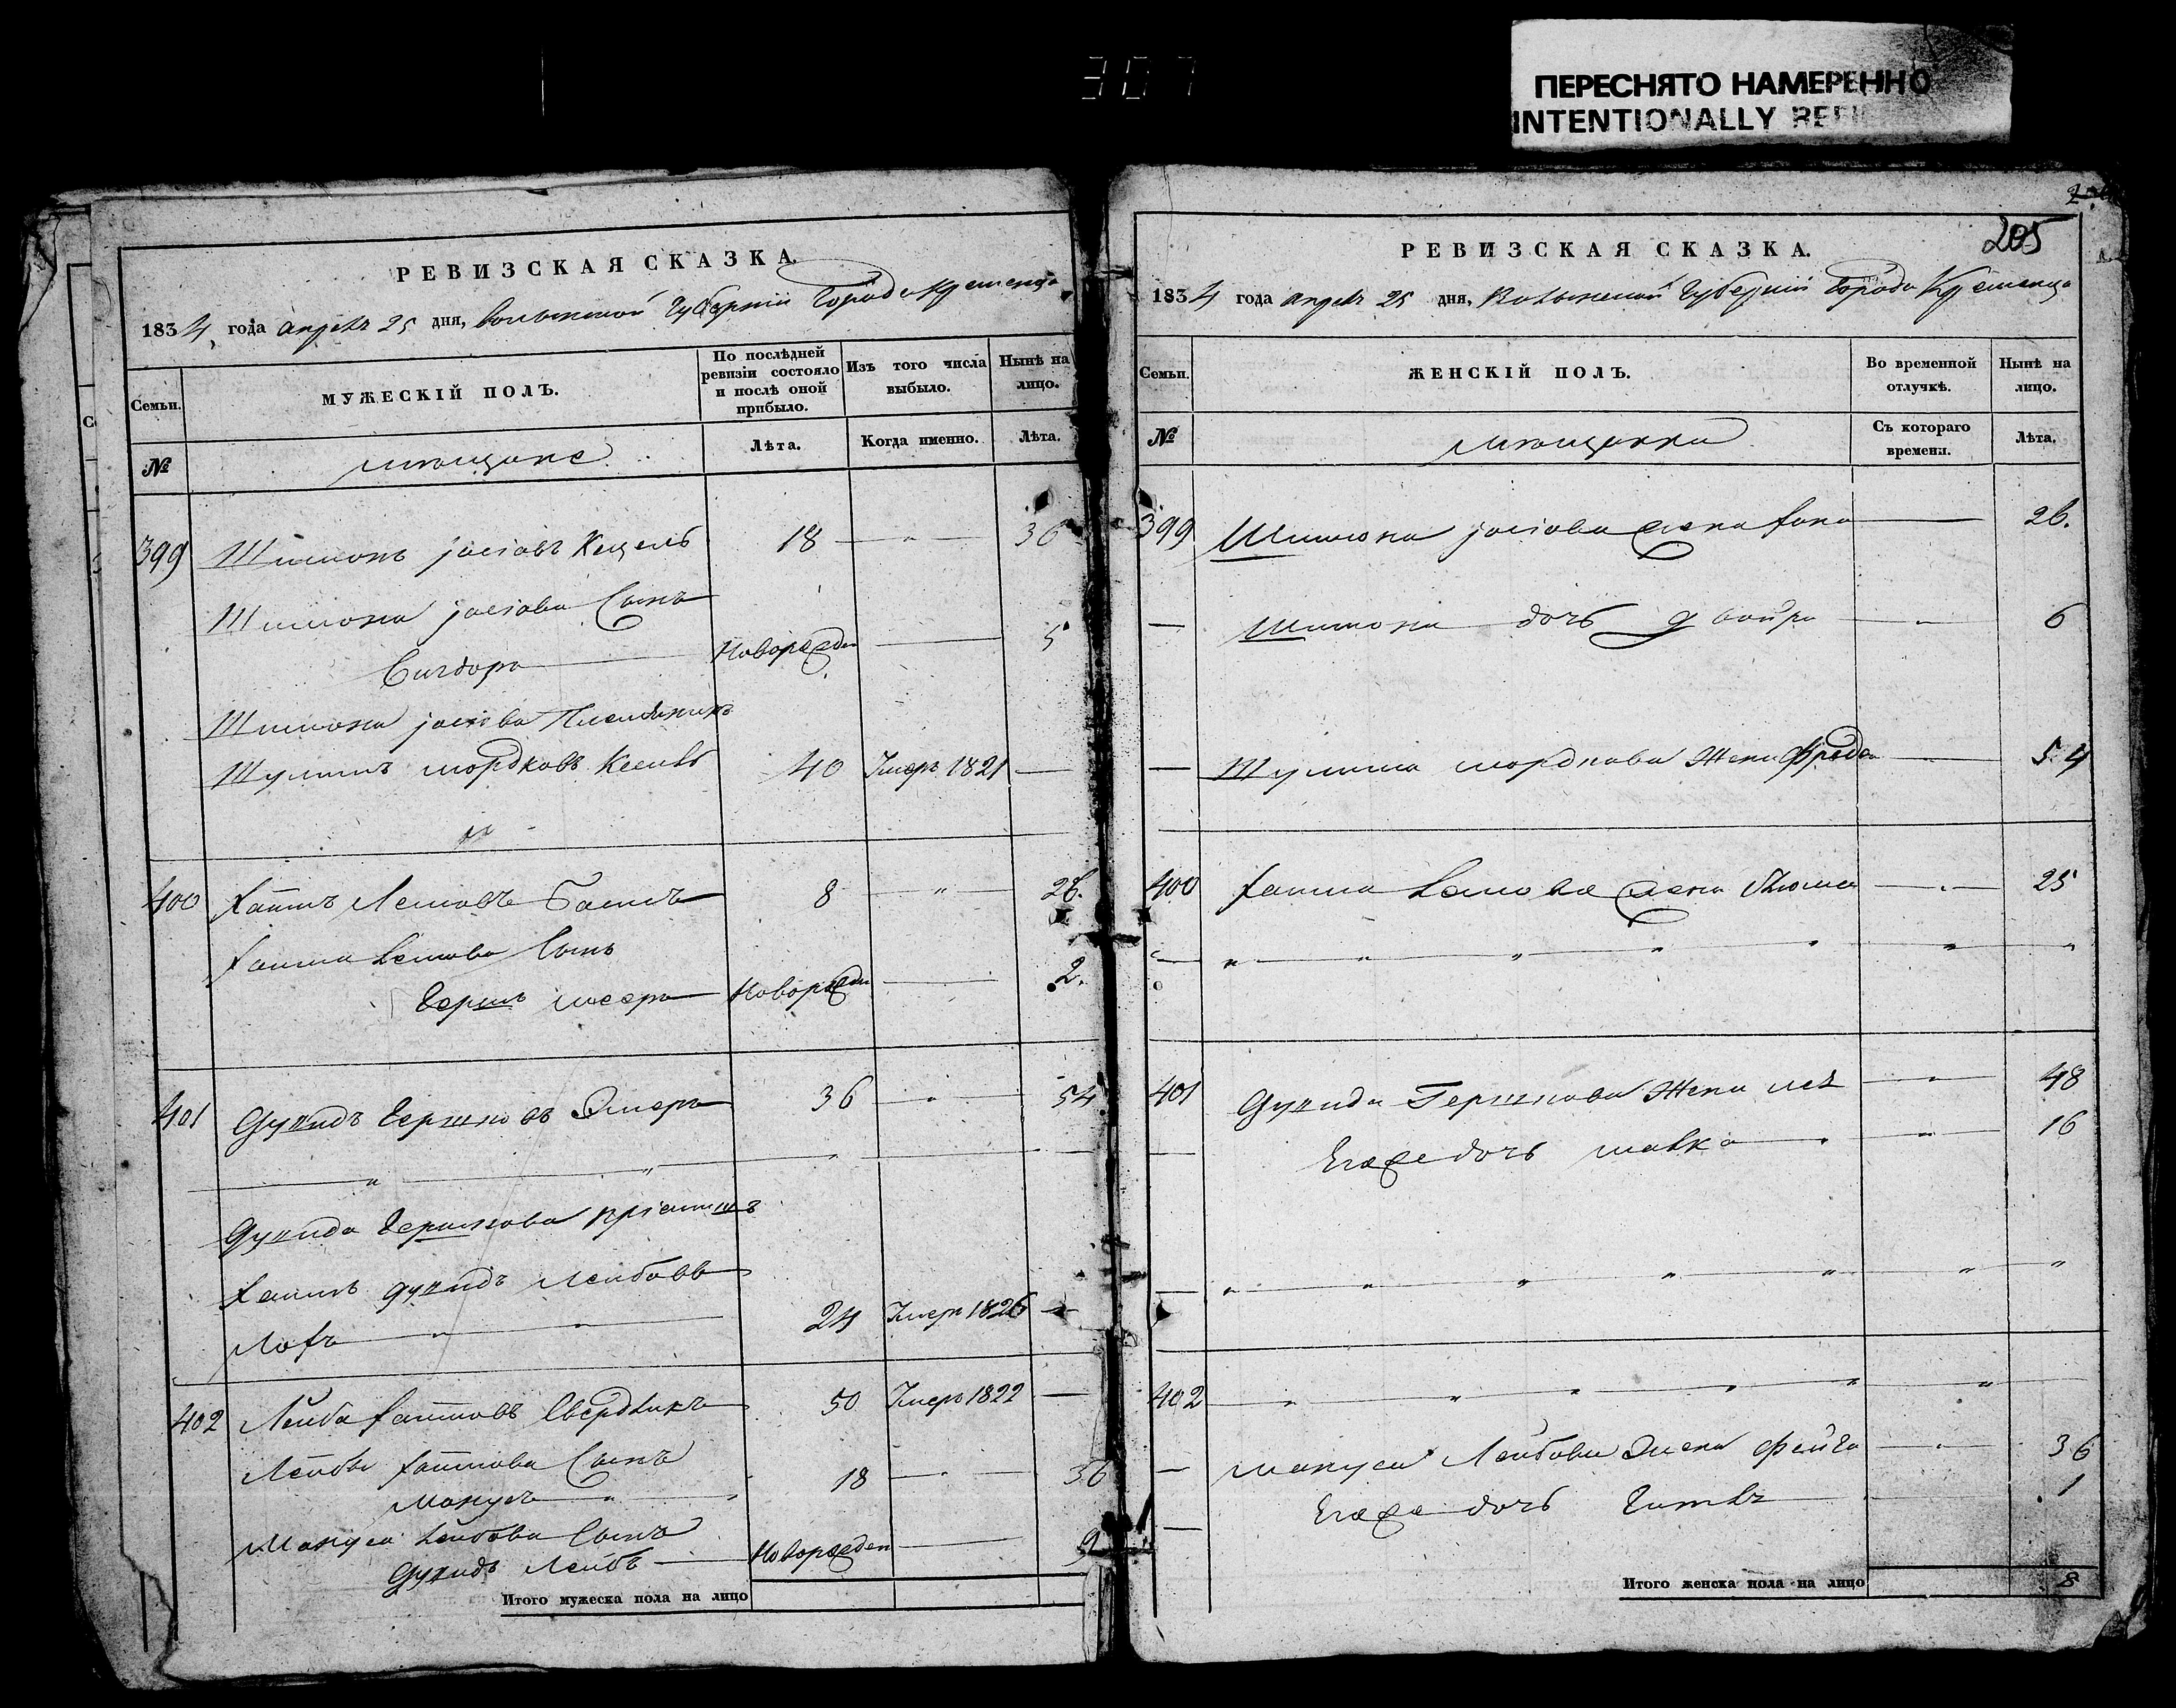 307
ПЕРЕСНЯТО НАМЕРЕННО
INTENTIONALLY
205
РЕВИЗСКАЯ СКАЗКА.
1834 года апреля 25 дня, Волынской Губерніи Города Кременца
Семьи.
МУЖЕСКІЙ ПОЛЪ.
По послѣдней ревизіи состояло и послѣ оной прибыло.
Изъ того числа выбыло.
Нынѣ на лицо.
№
мѣщане
Лѣта.
Когда именно.
Лѣта.
399 Шимонъ Іосіовъ 18 — " — 36
Шимона Іосіова Сынъ
Сигдоръ Новорожден — 5
Шимона Іосіова Племяникъ
Шулимъ Мордковъ 40 Умеръ 1821 —
400 Хаимъ Лемовъ 8 — " — 26.
Хаима Лемова Сынъ
Гершъ Мееръ Новорожден — 2.
401 Дувидъ Гершковъ 36 — " — 54
" " "
Дувида Гершкова пріемышъ
Хаимъ Дувидъ Лейбовъ
24 Умеръ 1826 —
402 Лейба Хаимовъ Свердликъ 50 Умеръ 1822 —
Лейбы Хаимова Сынъ
Манусъ " 18 — " — 36
Мануса Лейбова Сынъ
Дувидъ Лейбъ Новорожден — 9
Итого мужеска пола на лицо
РЕВИЗСКАЯ СКАЗКА.
1834 года апреля 25 дня, Волынской Губерній Города Кременца
Семьи.
ЖЕНСКІЙ ПОЛЪ.
Во временной отлучкѣ.
Нынѣ на лицо.
№
мѣщанки
Съ котораго времени.
Лѣта.
399 Шимона Іосіова жена Хана — 26.
— Шимона дочь Двойра — " — 6
— Шулима Мордкова Жена Фрейда — 54
400 Хаима Лемова жена Блюма — " — 25
— " " " " " " "
401 Дувида Гершкова Жена Лея — " — 48
— Егоже дочь Малка — " — 16
— " " " " " " "
402 " " " " " "
— Мануса Лейбова Жена Фейга — " — 36
— Егоже дочь Гитля 1
Итого женска пола на лицо 8